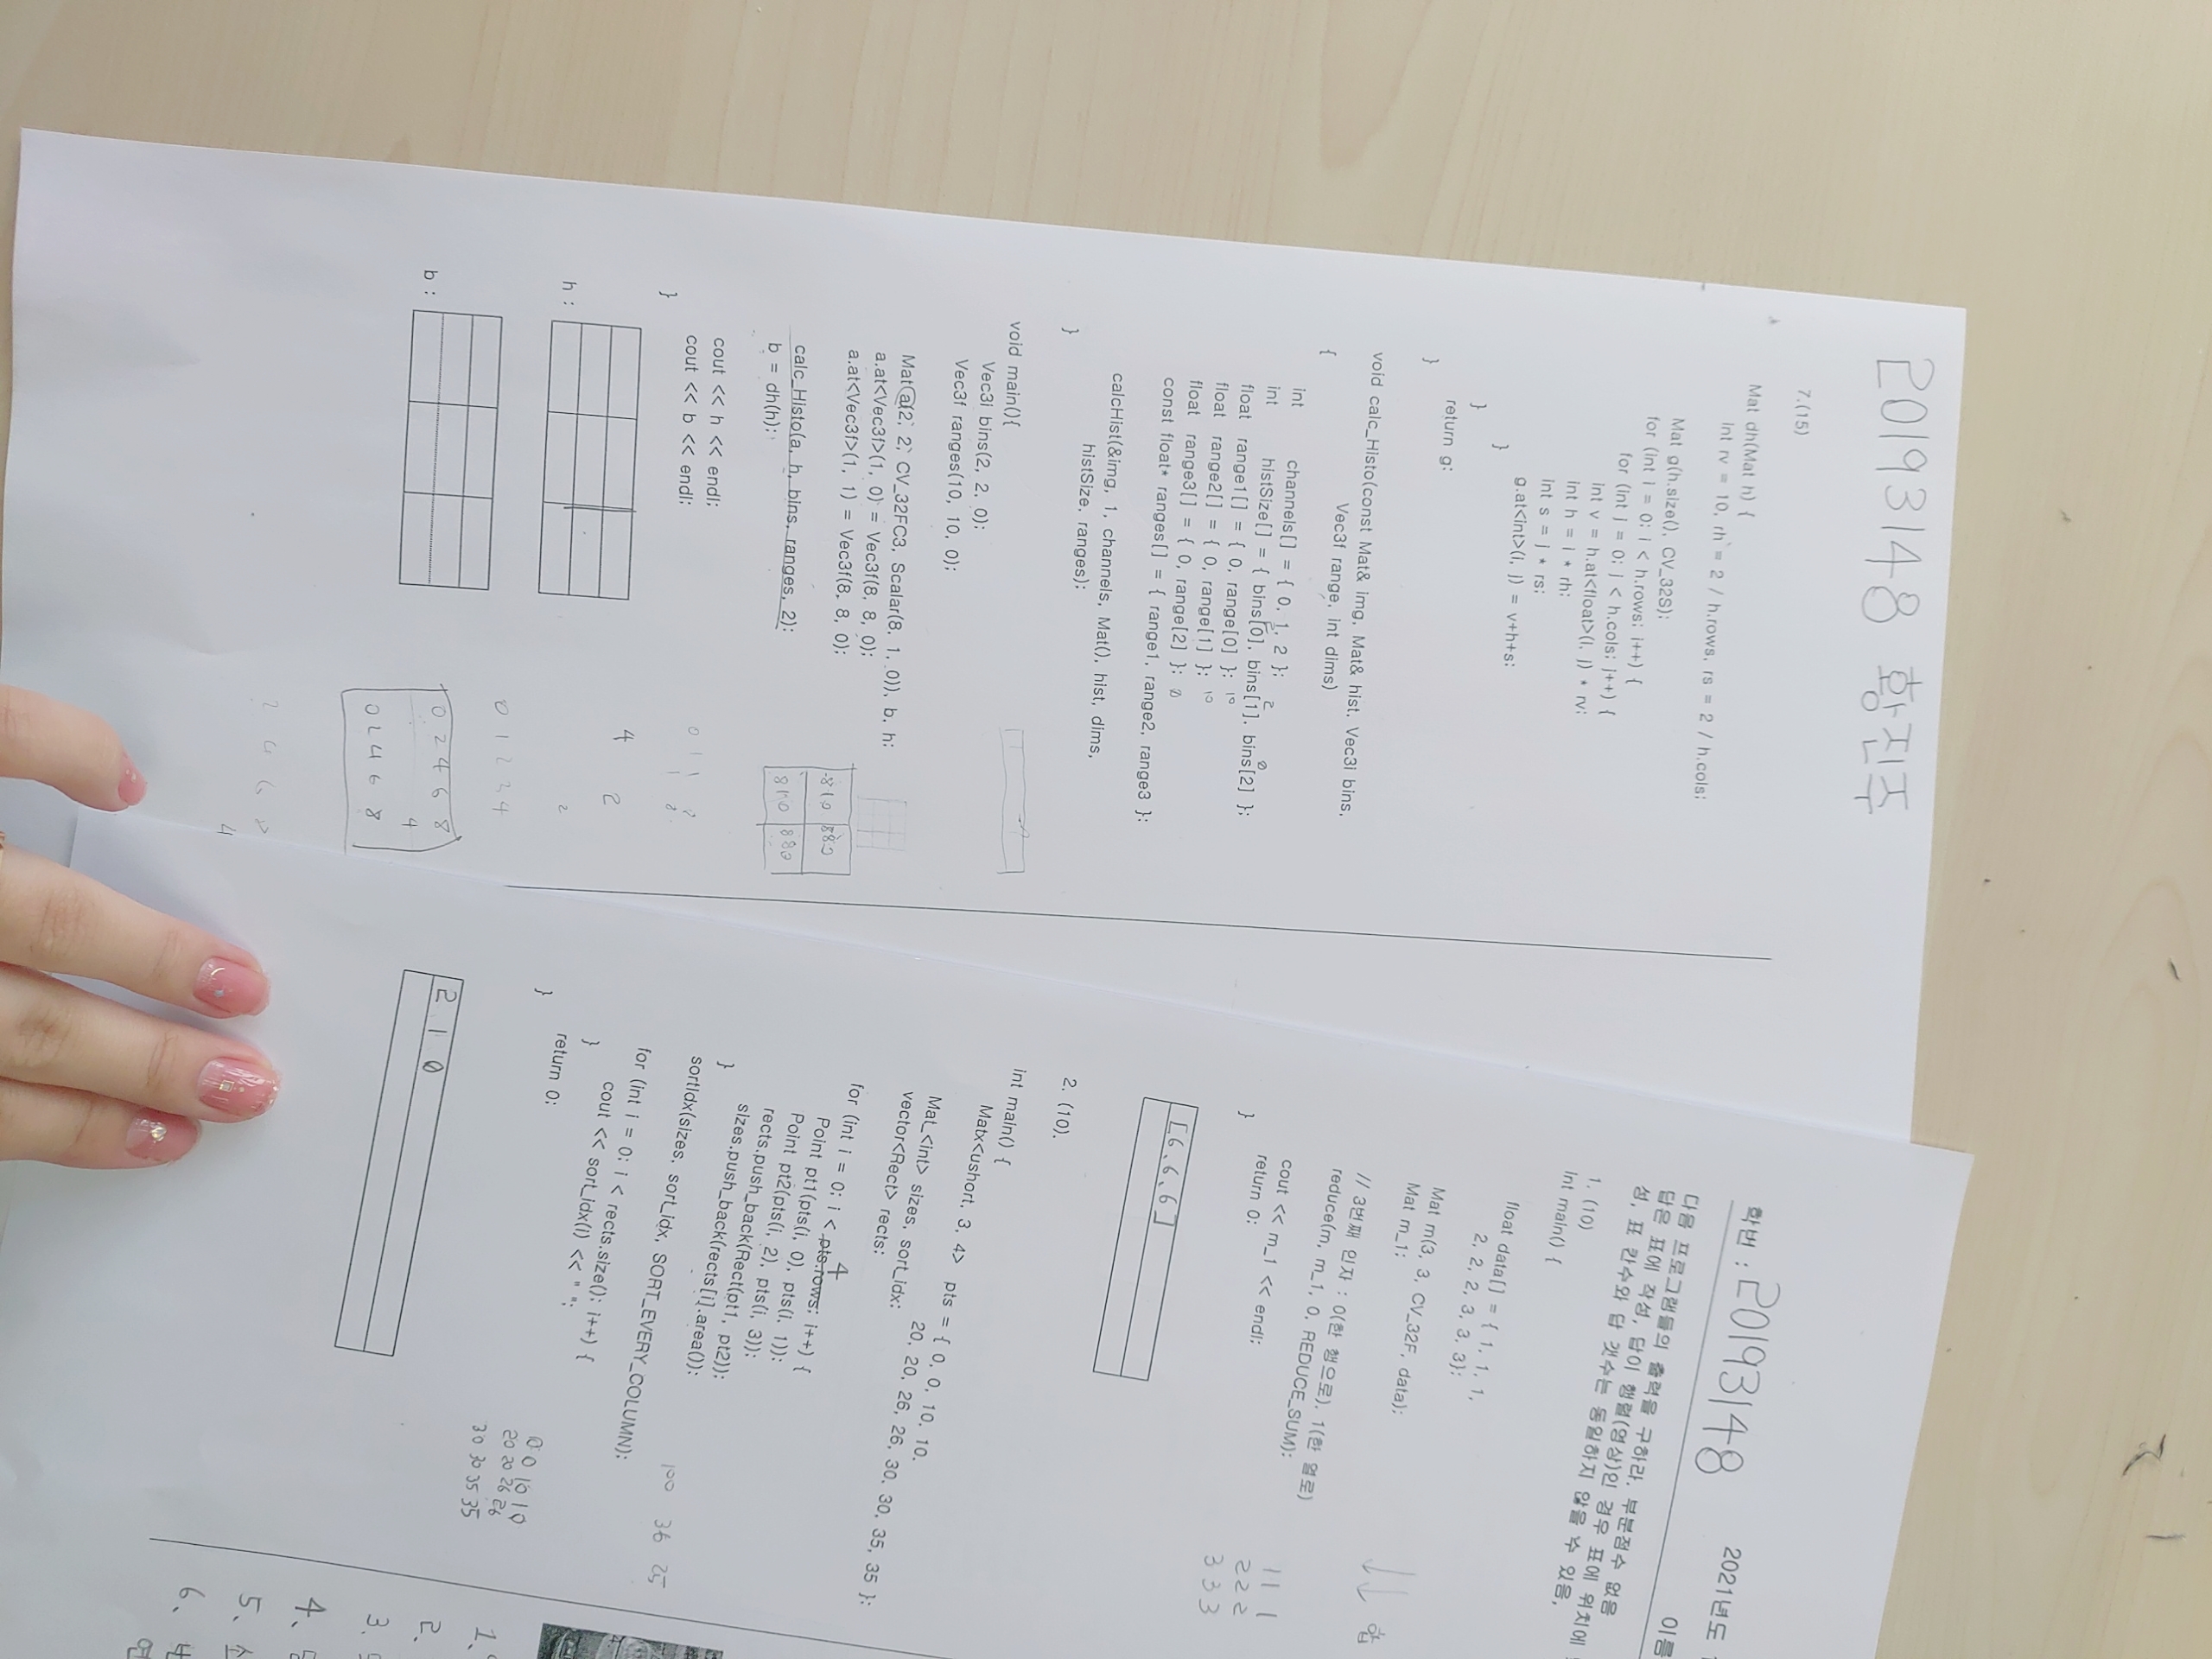 20193148 황진주
7.(15)
Mat dh(Mat h) {
int rv = 10, rh = 2 / h.rows, rs = 2 / h.cols;
Mat g(h.size(), CV_32S);
for (int i = 0; i < h.rows; i++) {
for (int j = 0; j < h.cols; j++) {
int v = h.at<float>(i, j) * rv;
int h = i * rh;
int s = j * rs;
g.at<int>(i, j) = v+h+s;
}
}
return g;
}
void calc_Histo(const Mat& img, Mat& hist, Vec3i bins,
Vec3f range, int dims)
{
int channels[] = { 0, 1, 2 };
2 2 0
int histSize[] = { bins[0], bins[1], bins[2] };
float range1[] = { 0, range[0] }; 10
float range2[] = { 0, range[1] }; 10
float range3[] = { 0, range[2] }; 0
const float* ranges[] = { range1, range2, range3 };
calcHist(&img, 1, channels, Mat(), hist, dims,
histSize, ranges);
}
void main(){
Vec3i bins(2, 2, 0);
Vec3f ranges(10, 10, 0);
Mat a(2, 2, CV_32FC3, Scalar(8, 1, 0)), b, h;
a.at<Vec3f>(1, 0) = Vec3f(8, 8, 0);
a.at<Vec3f>(1, 1) = Vec3f(8, 8, 0);
810 880
810 880
calc_Histo(a, h, bins, ranges, 2);
b = dh(h);
cout << h << endl;
cout << b << endl;
}
0 1 1 8
1 8
4 2
2
h :
0 1 2 3 4
b :
0 2 4 6 8
4
0 2 4 6 8
2 4 6 8
4
학번 : 20193148
2021년도
이름
다음 프로그램들의 출력을 구하라. 부분점수 없음
답은 표에 작성, 답이 행렬(영상)인 경우 표에 위치에
성, 표 칸수와 답 갯수는 동일하지 않을 수 있음,
1. (10)
int main() {
float data[] = { 1, 1, 1,
2, 2, 2, 3, 3, 3};
Mat m(3, 3, CV_32F, data);
Mat m_1;
합
// 3번째 인자 : 0(한 행으로). 1(한 열로)
reduce(m, m_1, 0, REDUCE_SUM);
cout << m_1 << endl;
return 0;
}
1 1 1
2 2 2
3 3 3
[6, 6, 6]
2. (10).
int main() {
Matx<ushort, 3, 4> pts = { 0, 0, 10, 10,
20, 20, 26, 26, 30, 30, 35, 35 };
Mat_<int> sizes, sort_idx;
vector<Rect> rects;
4
for (int i = 0; i < pts.rows; i++) {
Point pt1(pts(i, 0), pts(i, 1));
Point pt2(pts(i, 2), pts(i, 3));
rects.push_back(Rect(pt1, pt2));
sizes.push_back(rects[i].area());
}
100 36 25
sortIdx(sizes, sort_idx, SORT_EVERY_COLUMN);
for (int i = 0; i < rects.size(); i++) {
cout << sort_idx(i) << " ";
}
return 0;
}
0 0 10 10
20 20 26 26
30 30 35 35
2 1 0
1.
2.
3.
4.
5.
6.